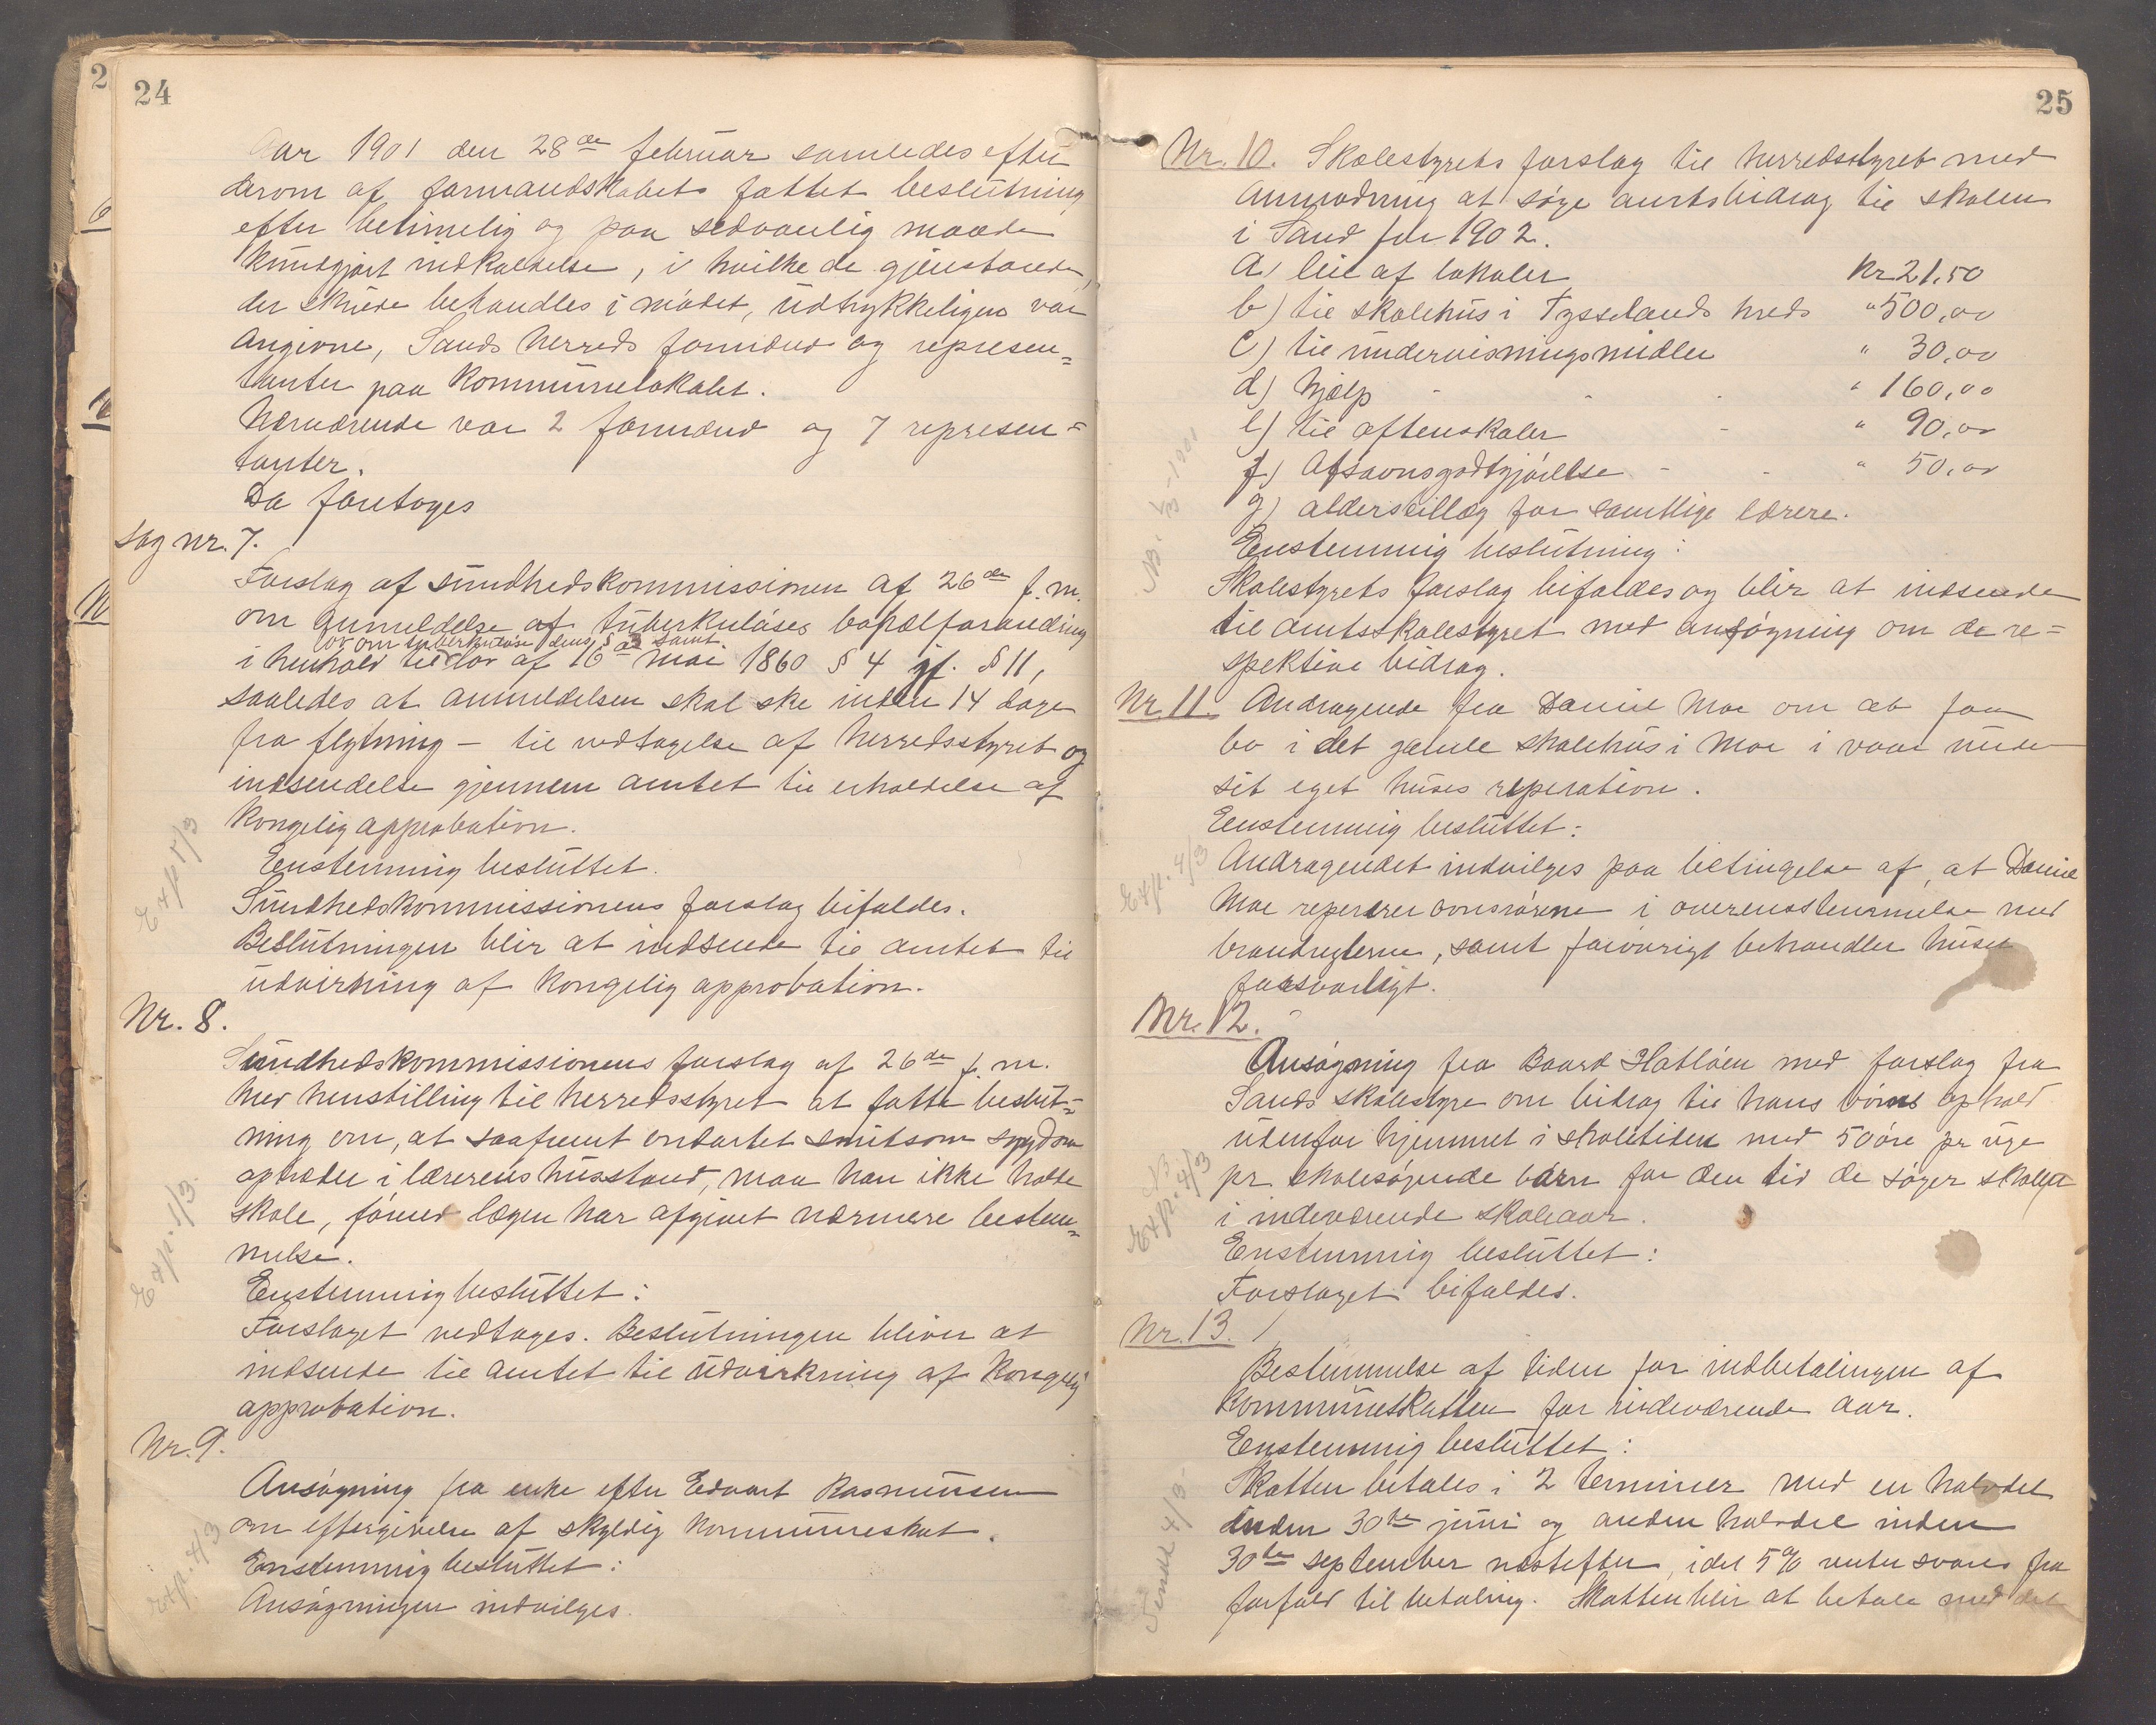 24
Aar 1901 den 28de februar samledes efter
derom af formandskabets fattet beslutning
efter betimelig og paa sedvanlig maade
kundgjort indkaldelse, i hvilke de gjenstande,
der skulde behandles i mødet, udtrykkeligen var
angivne, Sands herreds formænd og represen=
tanter paa kommunelokalet.
Nærværende var 2 formænd og 7 represen=
tanter.
Da foretoges
Sag nr. 7.
Forslag af sundhedskommissionen af 26de f.m.
om anmeldelse af tuberkuløses bopælforandring
lov om tuberkuløse dens § 3 samt
i henhold til lov af 16de mai 1860 § 4 jf. § 11,
saaledes at anmeldelsen skal ske inden 14 dage
fra flytning – til vedtagelse af herredsstyret og
indsendelse gjennem amtet til erholdelse af
kongelig approbation.
Enstemmig besluttet.
Sundhedskommissionens forslag bifaldes.
Beslutningen blir at indsende til amtet til
udvirkning af kongelig approbation.
Exp 1/3
Nr. 8.
Sundhedskommissionens forslag af 26de f.m.
med henstilling til herredsstyret at fatte beslut=
ning om, at saafremt ondartet smitsom sygdom
optræder i lærerens husstand, maa han ikke holde
skole, førend lægen har afgivet nærmere bestem=
melse.
Enstemmig besluttet:
Forslaget vedtages. Beslutningen bliver at
indsende til amtet til udvirkning af kongelig
approbation.
Exp. 1/3.
Nr. 9.
Ansøgning fra enke efter Edvart Rasmussen
om eftergivelse af skyldig kommuneskat.
Enstemmig besluttet:
Ansøgningen indvilges.
Exp. 4/3
25
Nr. 10. Skolestyrets forslag til herredsstyret med
anmodning at søge amtsbidrag til skolen
i Sand for 1902.
a) leie af lokaler kr 21,50
b) til skolehus i Tysselands kreds " 500,00
c) til undervisningsmidler " 30,00
d) hjelp - - - " 160,00
e) til aftenskoler - " 90,00
f) Afsavnsgodtgjørelse - - " 50,00
g) alderstillæg for samtlige lærere.
Enstemmig beslutning:
Skolestyrets forslag bifaldes og blir at indsende
til amtsskolestyret med ansøgning om de re=
spektive bidrag.
Nr. 11. Andragende fra Daniel Moe om at faa
bo i det gamle skolehus i Moe i vaar under
sit eget huses reperation.
Eenstemmig besluttet:
Andragendet indvilges paa betingelse af, at Daniel
Moe reperer ovnsrørene i overensstemmelse med
brandreglerne, samt forøvrigt behandler huset
forsvarligt.
Exp. 4/3
Nr. 12.
Ansøgning fra Baard Hatløen med forslag fra
Sands skolestyre om bidrag til hans børns ophold
udenfor hjemmet i skoletiden med 50 øre pr uge
pr skolesøgende barn for den tid de søger skolen
i indeværende skoleaar.
Enstemmig besluttet:
Forslaget bifaldes.
Exp. 4/3
Nr. 13.
Bestemmelse af tiden for indbetalingen af
kommuneskatten for indeværende aar.
Eenstemmig besluttet:
Skatten betales i 2 terminer med en halvdel
inden 30te juni og anden halvdel inden
30te september næstefter, idet 5% renter svares fra
forfald til betaling. Skatten blir at betale med det